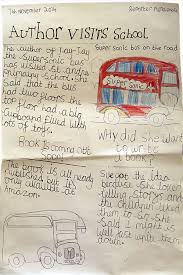 7th November 2014
AUTHOR VISITS SCHOOL
The author of Tay-Tay
the supersonic bus
visited St andrews
primary School. She
said that the bus
had two floors the
top floor had a big
cupboard filled with
lots of toys.
Super sonic bus on the road
Super Sonic
Book is coming out
Soon!
The book is all ready
published and it is
only available at
Amazon.
Why did she want
to write
a book?
She got the idea
because she loved
telling storys and
the children
asked them
to her so she
said I might as
well just write them
down.